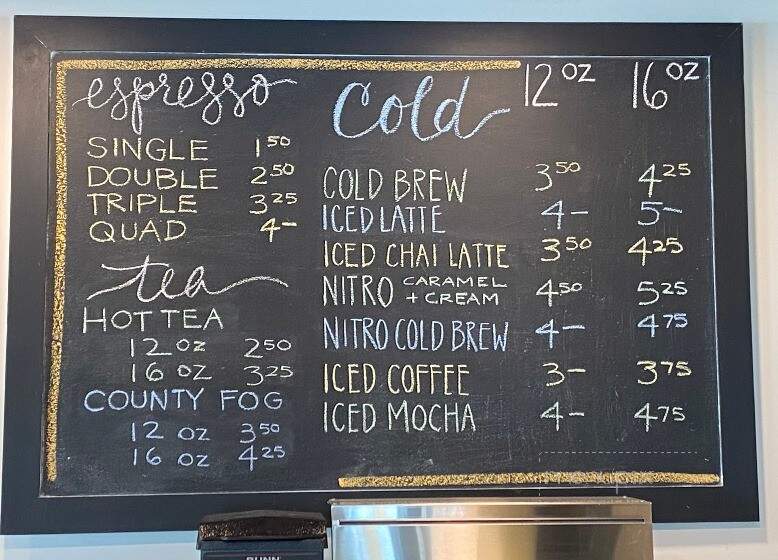 espresso
SINGLE 1 50
DOUBLE 2 50
TRIPLE 3 25
QUAD 4-
tea
HOT TEA
12 OZ 2 50
16 OZ 3 25
COUNTY FOG
12 OZ 3 50
16 OZ 4 25
Cold 12 OZ 16 OZ
COLD BREW 3 50 4 25
ICED LATTE 4- 5-
ICED CHAI LATTE 3 50 4 25
NITRO CARAMEL + CREAM 4 50 5 25
NITRO COLD BREW 4- 4 75
ICED COFFEE 3- 3 75
ICED MOCHA 4- 4 75
BUNN